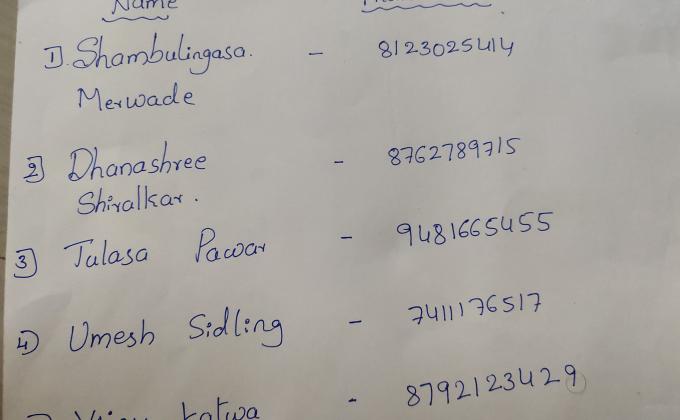 Name
1). Shambulingasa. - 8123025414
Merwade
2) Dhanashree - 8762789715
Shiralkar.
3) Tulasa Pawar - 9481665455
4) Umesh Sidling - 7411176517
- 8792123429